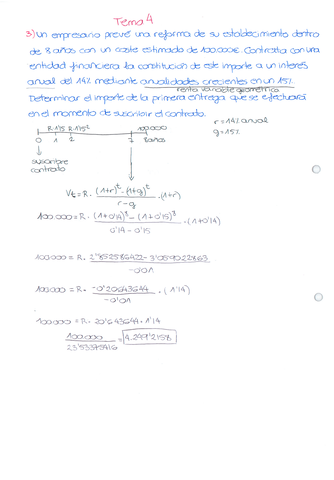 Tema 4
3) Un empresario prevé una reforma de su establecimiento dentro
de 8 años con un coste estimado de 100.000€. Contrata con una
entidad financiera la constitución de este importe a un interés
anual del 14% mediante anualidades crecientes en un 15%.
renta variable geométrica
Determinar el importe de la primera entrega que se efectuará
en el momento de suscribir el contrato.
R R·1'15 R·1'15² 100.000
r = 14% anual
0 1 2 7 8 años
g = 15%
suscribe
contrato
Vt = R · (1+r)^t - (1+g)^t / r - g · (1+r)
100.000 = R · (1+0'14)^8 - (1+0'15)^8 / 0'14 - 0'15 · (1+0'14)
100.000 = R · 2'852586422 - 3'059022863 / -0'01
100.000 = R · -0'20643644 / -0'01 · (1'14)
100.000 = R · 20'643644 · 1'14
100.000 / 23'53375416 = 4.249'2158